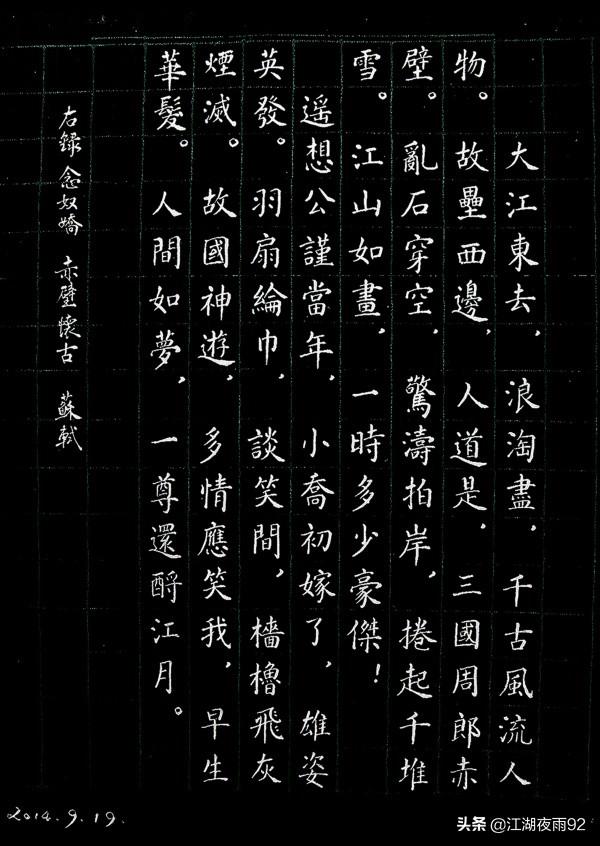 大江東去，浪淘盡，千古風流人
物。故壘西邊，人道是，三國周郎赤
壁。亂石穿空，驚濤拍岸，捲起千堆
雪。江山如畫，一時多少豪傑！
遥想公謹當年，小喬初嫁了，雄姿
英發。羽扇綸巾，談笑間，檣櫓飛灰
煙滅。故國神遊，多情應笑我，早生
華髮。人間如夢，一尊還酹江月。
右録 念奴嬌 赤壁懷古 蘇軾
2014.9.19.
头条 @江湖夜雨92